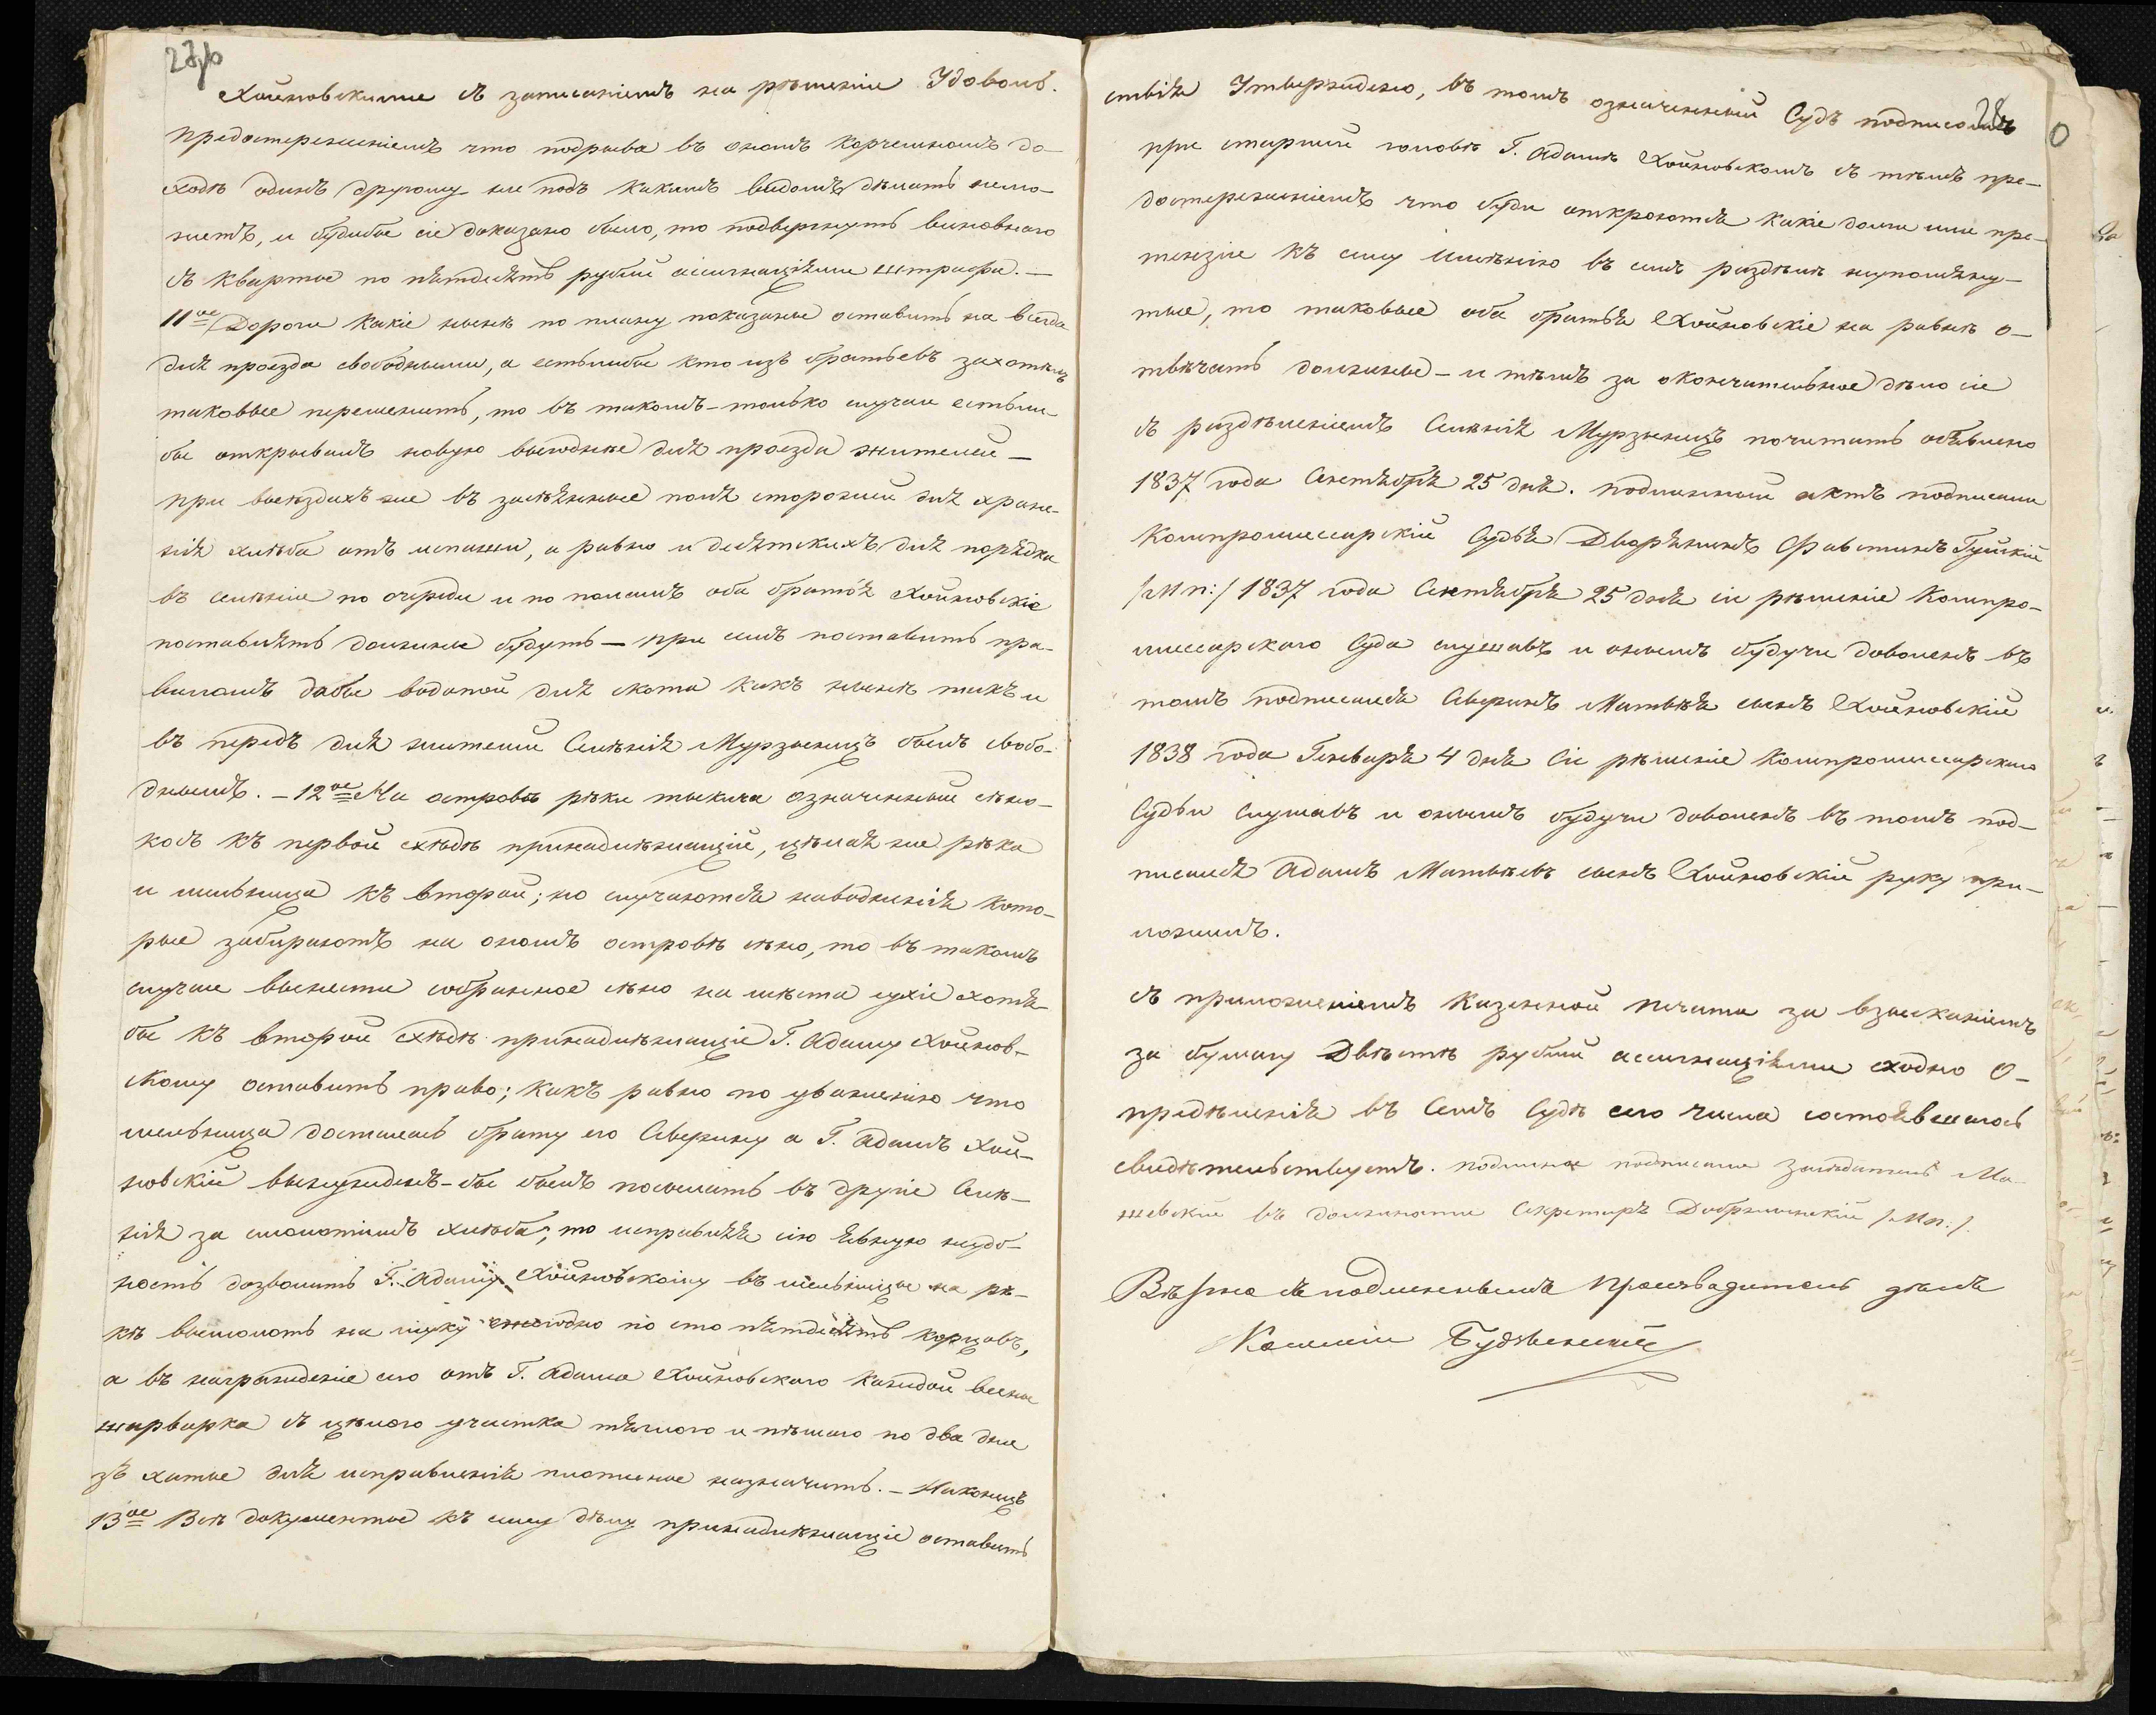 27об
Хойновскими съ записаніемъ на рѣшеніе Удоволь.
предостереженіемъ что подрыва въ ономъ корчемномъ до-
ходѣ одинъ другому не подъ какимъ видомъ дѣлать не мо-
жетъ, и будибы сіе доказано было, то подвергнуть виновнаго
съ кварты по пятдесятъ рублей ассигнаціями штрафа. —
11ое Дороги какіе нынѣ по плану показаны оставить на всегда
для проезда свободными, а естьлибы кто изъ братьевъ захотѣлъ
таковые переменить, то въ такомъ-только случаи естьли-
бы открывалъ новую выгодные для проезда жителей —
при выездахъ же въ засѣянные поля сторожей для хране-
нія хлѣба отъ испаши, а равно и десятскихъ для порядка
въ селеніи по очереди и по поламъ оба братья Хойновскіе
поставлять должны будутъ — при семъ поставить пра-
виломъ дабы водопой для скота какъ нынѣ такъ и
въ передъ для жителей Селенія Мурзынецъ былъ свобо-
днымъ. — 12ое На островѣ рѣки тыкича означенный сѣно-
косъ къ первой схѣдѣ принадлежащій, цѣлая же рѣка
и мельница къ второй; но случаются наводненія кото-
рые забираютъ на ономъ островѣ сѣно, то въ такомъ
случаи вынести собранное сѣно на мѣста сухіе хотя-
бы къ второй схѣдѣ принадлежащіе Г. Адаму Хойнов-
скому оставить право; какъ равно по уваженію что
мельница досталась брату его Северину а Г. Адамъ Хой-
новскій вынужденъ-бы былъ посылать въ другіе Селе-
нія за смолотіемъ хлѣба, то исправляя сію явную неудоб-
ность дозволить Г. Адаму Хойновскому въ мельницы на рѣ-
кѣ вымолоть на муку ежегодно по сто пятдесятъ корцовъ,
а въ награжденіе его отъ Г. Адама Хойновскаго каждой весны
шарварка съ цѣлого участка тяглого и пѣшаго по два дни
зъ хаты для исправленія плотины назначить. — Наконецъ
13ое Всѣ документы къ сему дѣлу принадлежащіе оставить
28
ствія Утверждено, въ томъ означенный Судъ подписомъ
при старшей головѣ Г. Адамѣ Хойновскомъ съ тѣмъ пре-
достереженіемъ что буди откроются какіе долги или пре-
тензіи къ сему имѣнію въ семъ раздѣлѣ неупомяну-
тые, то таковые оба братья Хойновскіе на равнѣ о-
твѣчать должны — и тѣмъ за окончательное дѣло сіе
съ раздѣленіемъ Селенія Мурзынецъ почитать объявлено
1837 года Сентября 25 дня. подлинный актъ подписали
Компромиссарскій Судья Дворянинъ Фавстинъ Гулскій
/:М п:/ 1837 года Сентября 25 дня сіе рѣшеніе Компро-
миссарскаго Суда слушавъ и онымъ будучи доволенъ въ
томъ подписался Северинъ Матвѣя сынъ Хойновскій
1838 года Генваря 4 дня Сіе рѣшеніе Компромиссарскаго
Судьи Слушавъ и онымъ будучи доволенъ въ томъ под-
писался Адамъ Матвѣевъ сынъ Хойновскій руку при-
ложилъ.
съ приложеніемъ Казенной печати за взысканіемъ
за бумагу Двѣстѣ рублей ассигнаціями сходно о-
предѣленія въ Семъ Судѣ сего числа состоявшагось
свидѣтельствуетъ. подлинное подписали Засѣдатель Ма-
шевскій въ должности Секретаря Добрянскій /:М п:/.
Вѣрно съ подлиннымъ Производитель дѣлъ